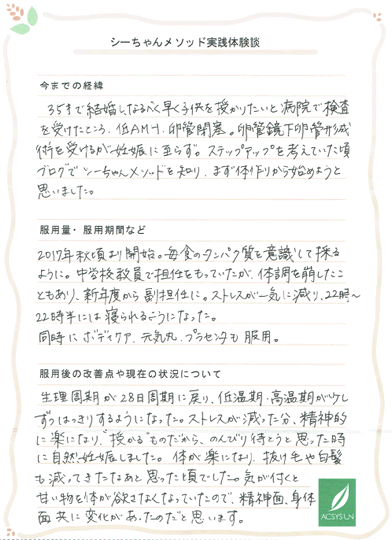 シーちゃんメソッド実践体験談
今までの経緯
35才で結婚し、なるべく早く子供を授かりたいと病院で検査
を受けたところ、低AMH、卵管閉塞。卵管鏡下卵管形成
術を受けるが妊娠に至らず。ステップアップを考えていた頃
ブログでシーちゃんメソッドを知り、まず体作りから始めようと
思いました。
服用量・服用期間など
2017年秋頃より開始。毎食のタンパク質を意識して採る
ように。中学校教員で担任をもっていたが、体調を崩したこ
ともあり、新年度から副担任に。ストレスが一気に減り、22時〜
22時半には寝られるようになった。
同時にボディケア、元気丸、プラセンタも服用。
服用後の改善点や現在の状況について
生理周期が28日周期に戻り、低温期・高温期が少し
ずつはっきりするようになった。ストレスが減った分、精神的
に楽になり、"授かる"ものだから、のんびり待とうと思った時
に自然妊娠しました。体が楽になり、抜け毛や白髪
も減ってきたなあと思った頃でした。気が付くと
甘い物を体が欲さなくなっていたので、精神面、身体
面共に変化があったのだと思います。
ACSYSUN